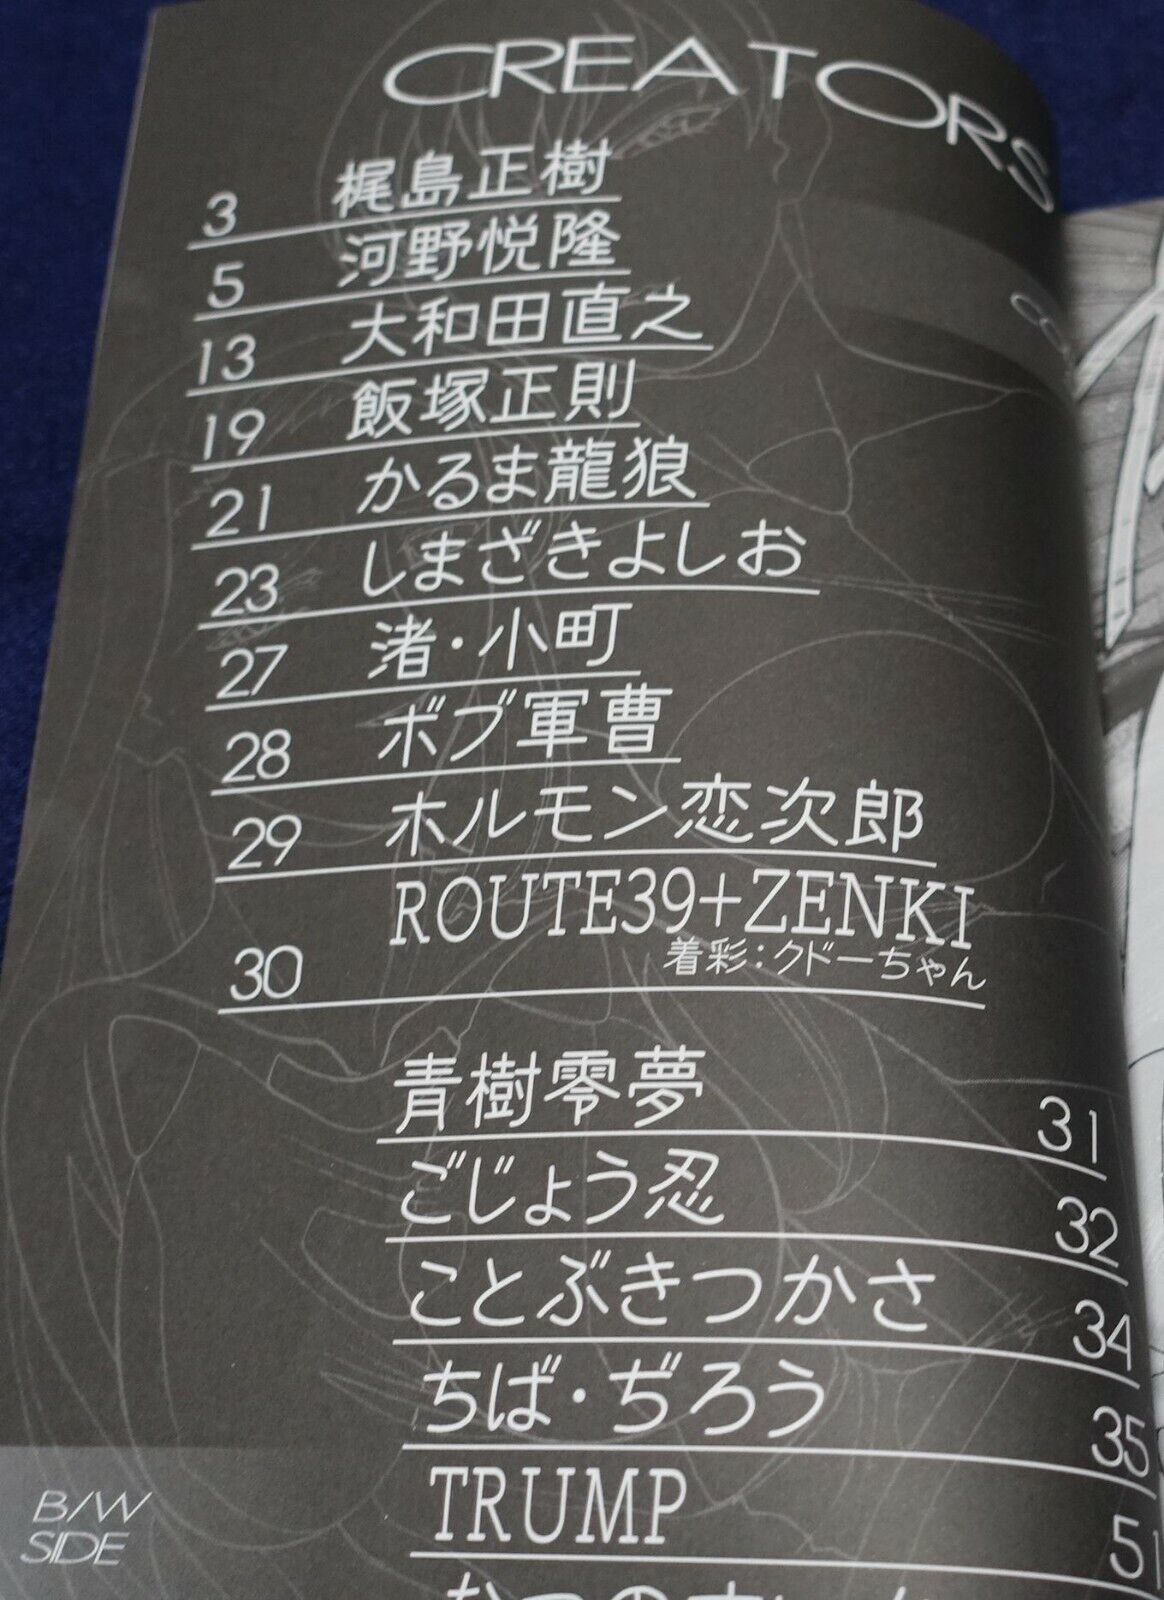 CREATORS
3 梶島正樹
5 河野悦隆
13 大和田直之
19 飯塚正則
21 かるま龍狼
23 しまざきよしお
27 渚・小町
28 ボブ軍曹
29 ホルモン恋次郎
30 ROUTE39+ZENKI
着彩：クドーちゃん
青樹零夢 31
ごじょう忍 32
ことぶきつかさ 34
ちば・ぢろう 35
TRUMP 51
B/W
SIDE